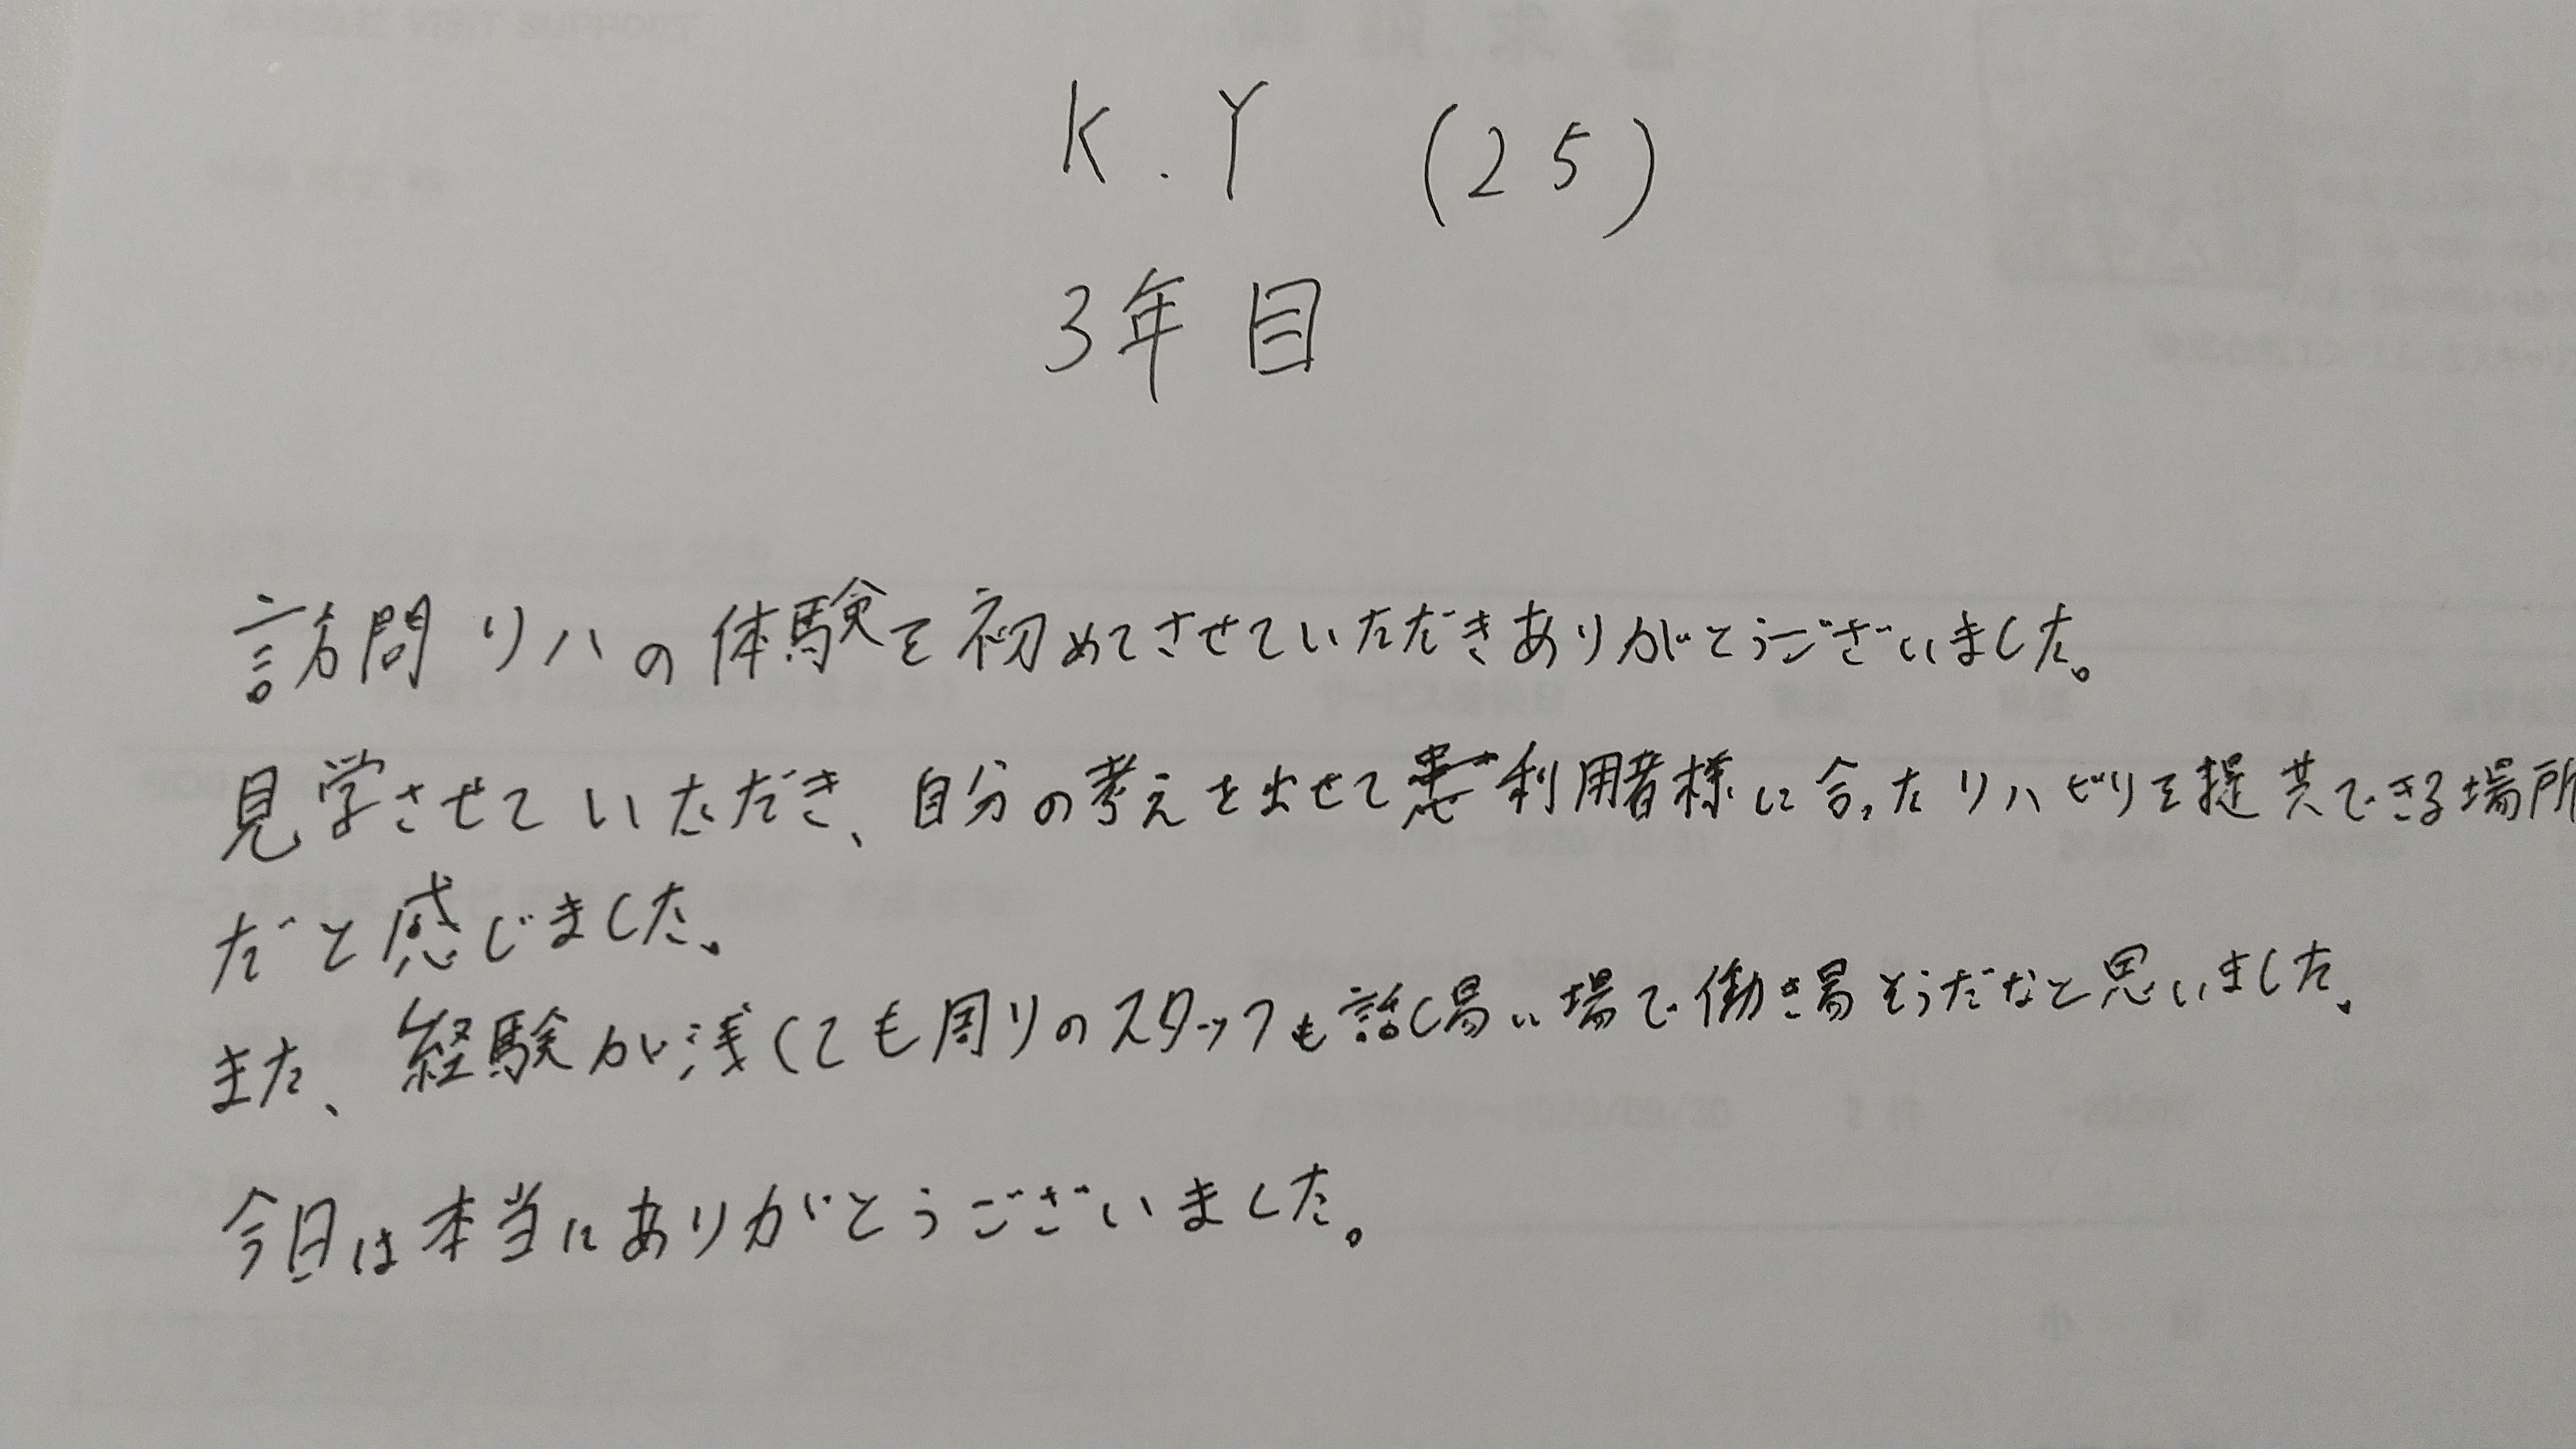 K.Y (25)
3年目
訪問リハの体験を初めてさせていただきありがとうございました。
見学させていただき、自分の考えを出せて利用者様に合ったリハビリを提共できる場所
だと感じました。
また、経験が浅くても周りのスタッフも話し易い場で働き易そうだなと思いました。
今日は本当にありがとうございました。